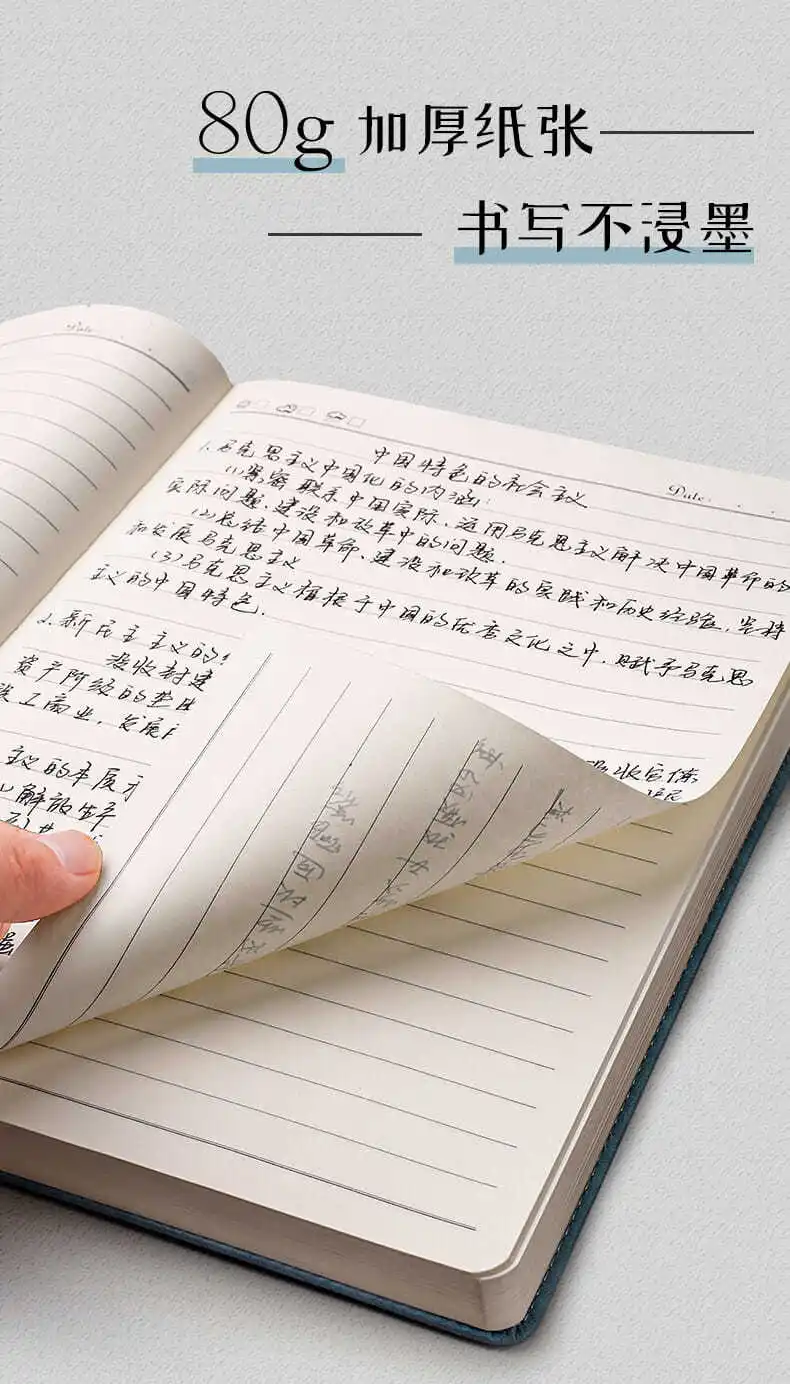 80g 加厚纸张
书写不浸墨
Date:
Date:
中国特色的社会主义
1.马克思主义中国化的内涵:
(1)紧密联系中国实际,运用马克思主义解决中国革命的
实际问题,建设和改革中的问题.
(2)总结中国革命、建设和改革的实践和历史经验,坚持
和发展马克思主义
(3)马克思主义植根于中国的优秀文化之中,赋予马克思
主义的中国特色.
2.新民主主义的
没收封建
资产阶级的垄
工商业,发展
收官僚
主义的本质
解放生产